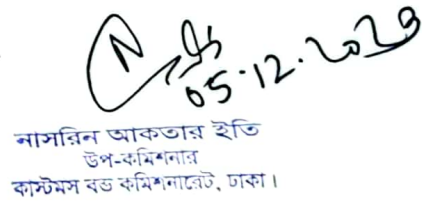 05.12.2023
নাসরিন আকতার ইতি
উপ-কমিশনার
কাস্টমস বন্ড কমিশনারেট, ঢাকা।